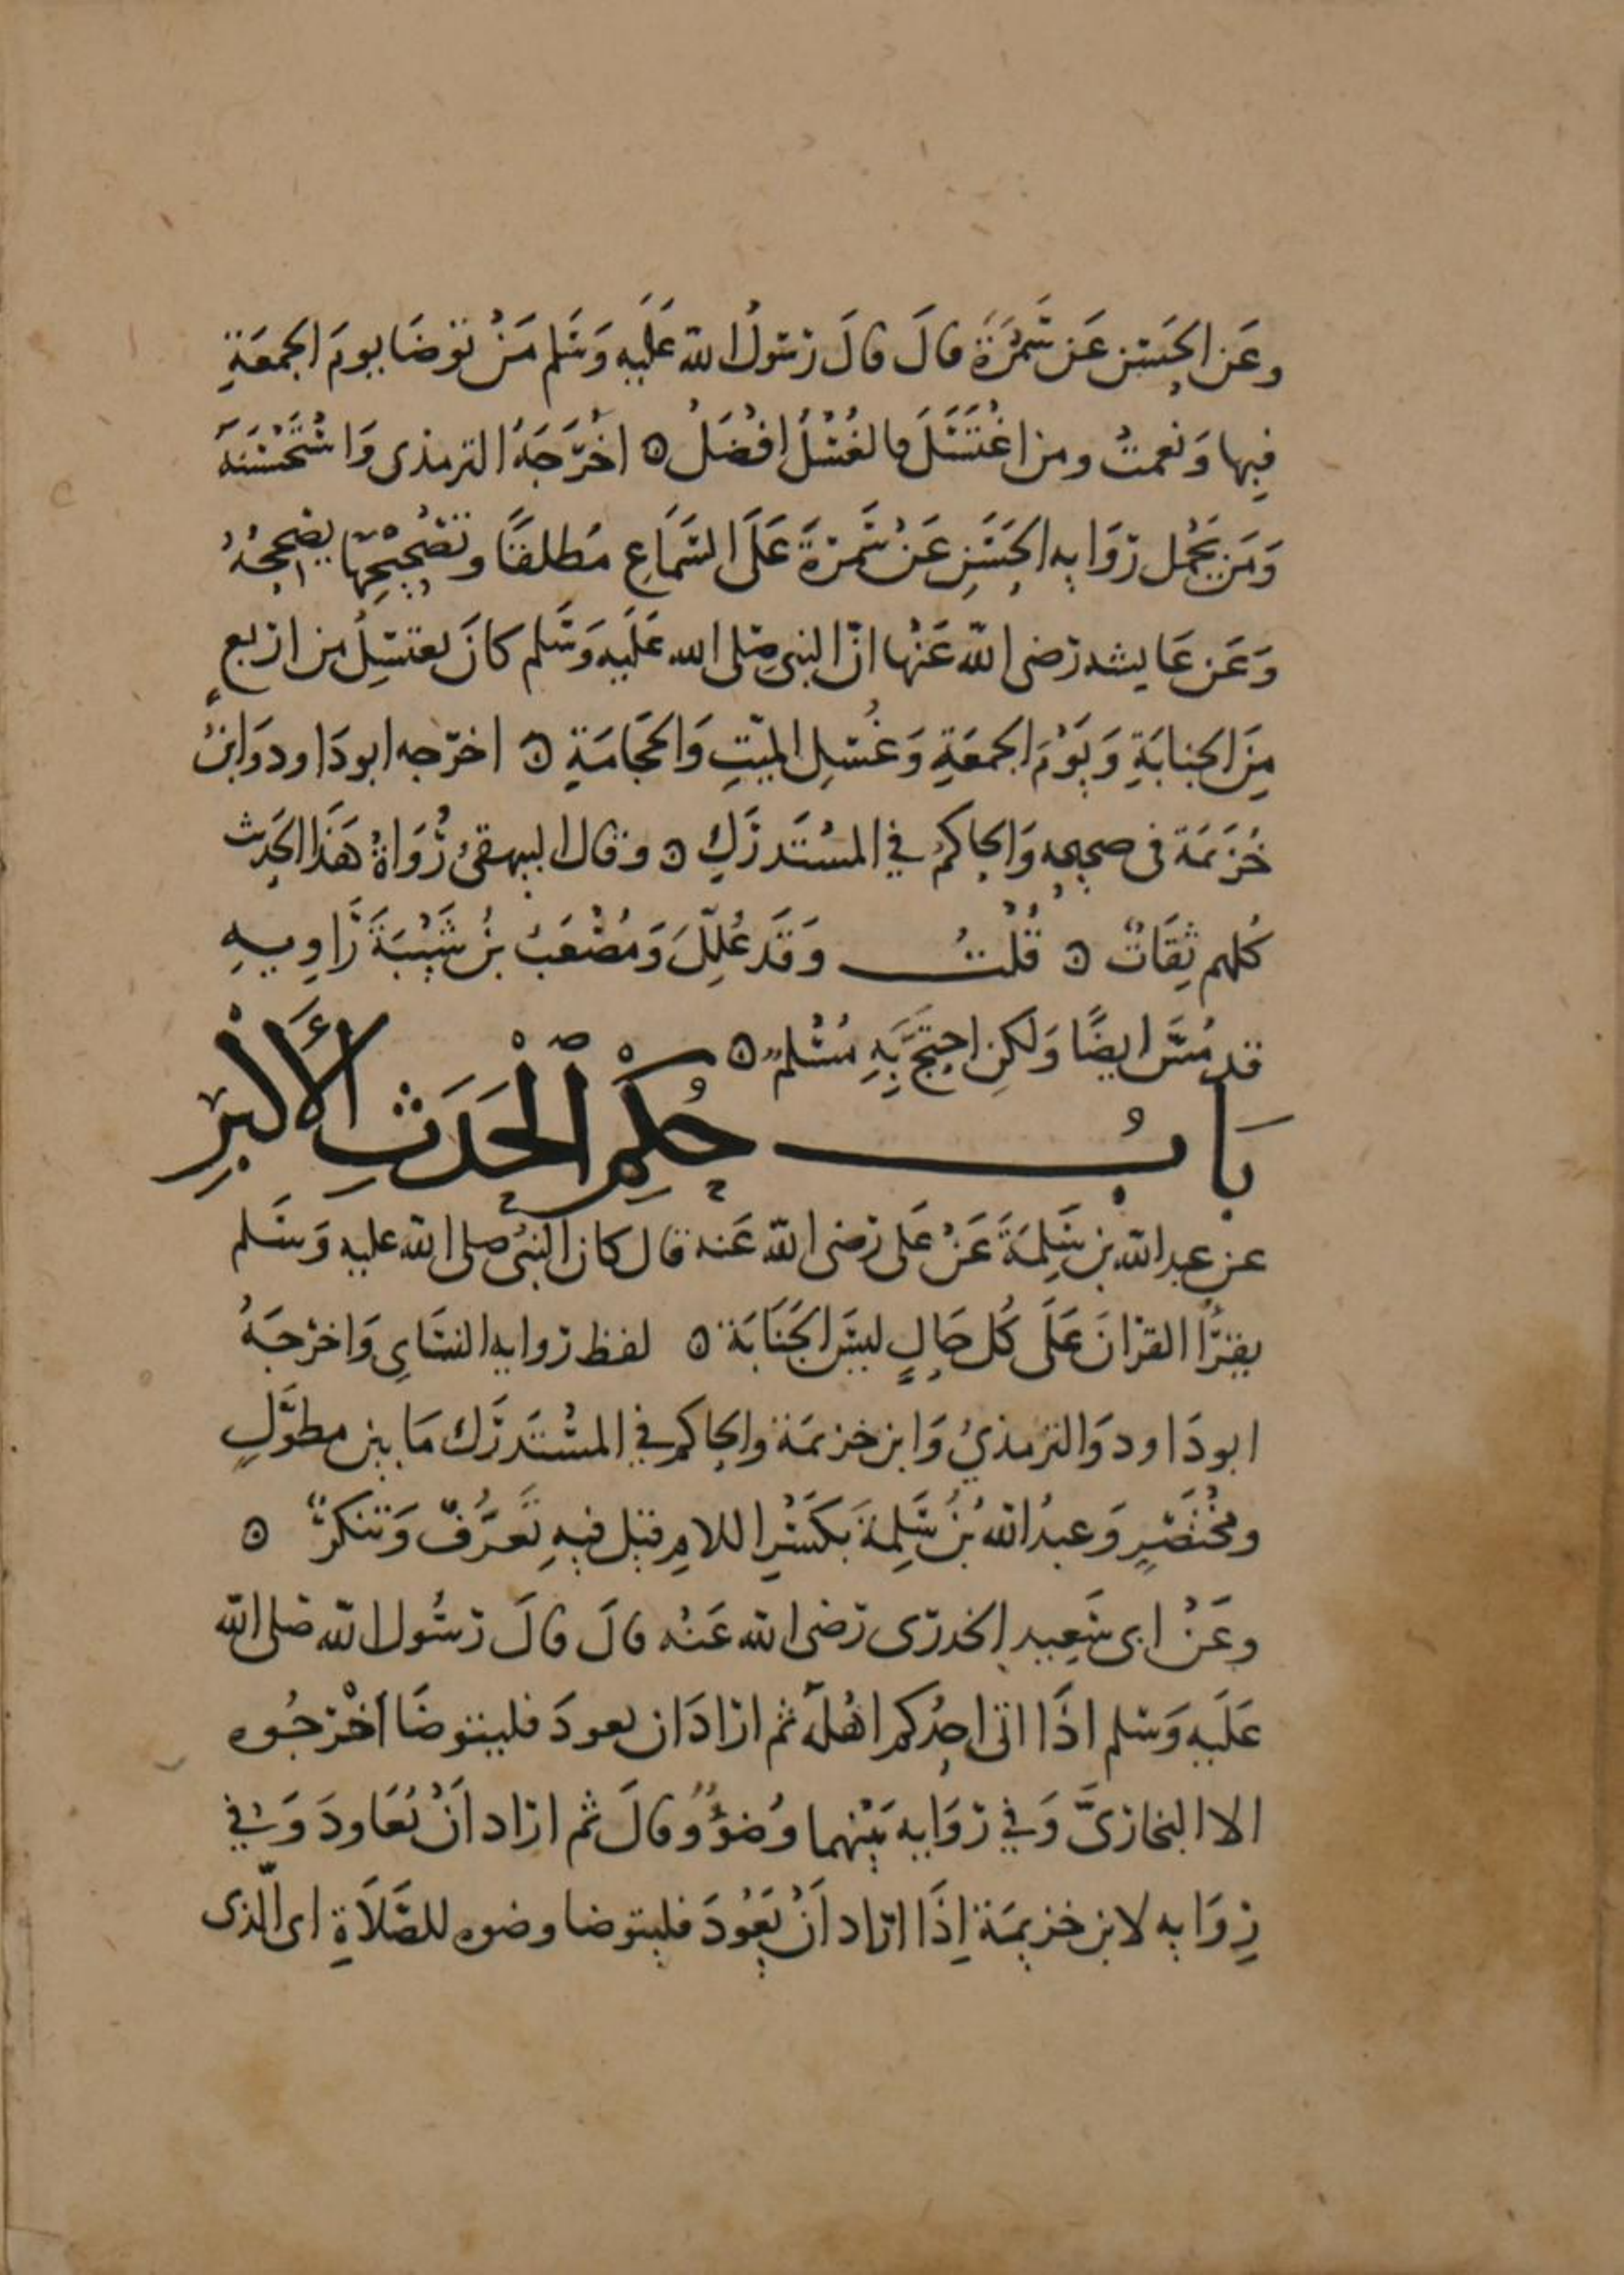 وعَن الحَسَن عَن سَمُرَةَ قالَ قالَ رَسُولُ الله عَلَيه وَسَلم مَنْ توضَا يومَ الجمعَةِ
فبها وَنعمتْ ومن اغْتَسَلَ فالغُسْلُ افْضَلُ ه اخْرَجَهُ الترمذى وَاسْتَحْسَنَهُ
وَمَن يَحْمل رِوَايه الحَسَنِ عَنْ سَمرَةَ عَلَى السَمَاعِ مُطلقًا وتصْحِيْحِهَا يصَححُهُ
وَعَن عَايشه رَضى اللّه عَنْها انّ النبى صَلى الله عَلَيه وَسَلم كانَ يغتسِلُ من اربعٍ
مِنَ الجنابَةِ وَيَوْمَ الجمعَةِ وَغُسْلِ الميّتِ وَالحجَامَةِ ه اخرَجه ابودَاود وَابنُ
خُزَيمَة فى صحيحه وَالحاكمُ في المسْتَدرَكِ ه وقال البيهقىُ رُوَاةُ هَذَا الحَدِيث
كُلهم ثِقَاتٌ ه قُلْتُ وَقَد عُلِّلَ وَمُصْعَبُ بنُ شَيْبَةَ رَاوِيهِ
قد مُسَّ ايضًا وَلَكِن احتَجَّ بِهِ مُسْلمٌ ه
بَابُ حُكْمِ الْحَدَثِ الأَكْبَرِ
عن عبدالله بن سَلِمَةَ عَنْ عَلى رَضى اللّه عَنه قال كان النبىُ صلى الله عليه وَسَلم
يقرَأ القرْانَ عَلَى كُل حَالٍ ليسَ الجَنَابَة ه لفظ رواية النسَاىِ وَاخرَجَهُ
ابودَاود وَالترمذيُ وَابن خزيمَة والحاكم في المسْتَدرَك مَا بين مطوَّلٍ
ومخْتَصَرٍ وَعبدُ الله بنُ سَلِمَةَ بكَسْرِ اللامِ قيل فيهِ تَعَرَّفُ وَتنكرُ ه
وعَنْ ابى سَعِيدٍ الخدرى رَضى الله عَنْه قالَ قالَ رَسُول اللّه صَلى الله
عَلَيه وَسَلم اذَا اتى احدُكم اهْلَهُ ثم ارَادَ ان يعودَ فليتوضَا اَخْرَجُوه
الا البخارىَّ وَفي رِوَايه بَيْنهما وُضوْءٌ وقالَ ثم ارَاد اَنْ يُعَاودَ وَفي
رِوَايه لابن خزيمَة اِذَا ارَاد اَنْ يَعُودَ فليتوضا وضوه للصَّلَاةِ اى الّذى